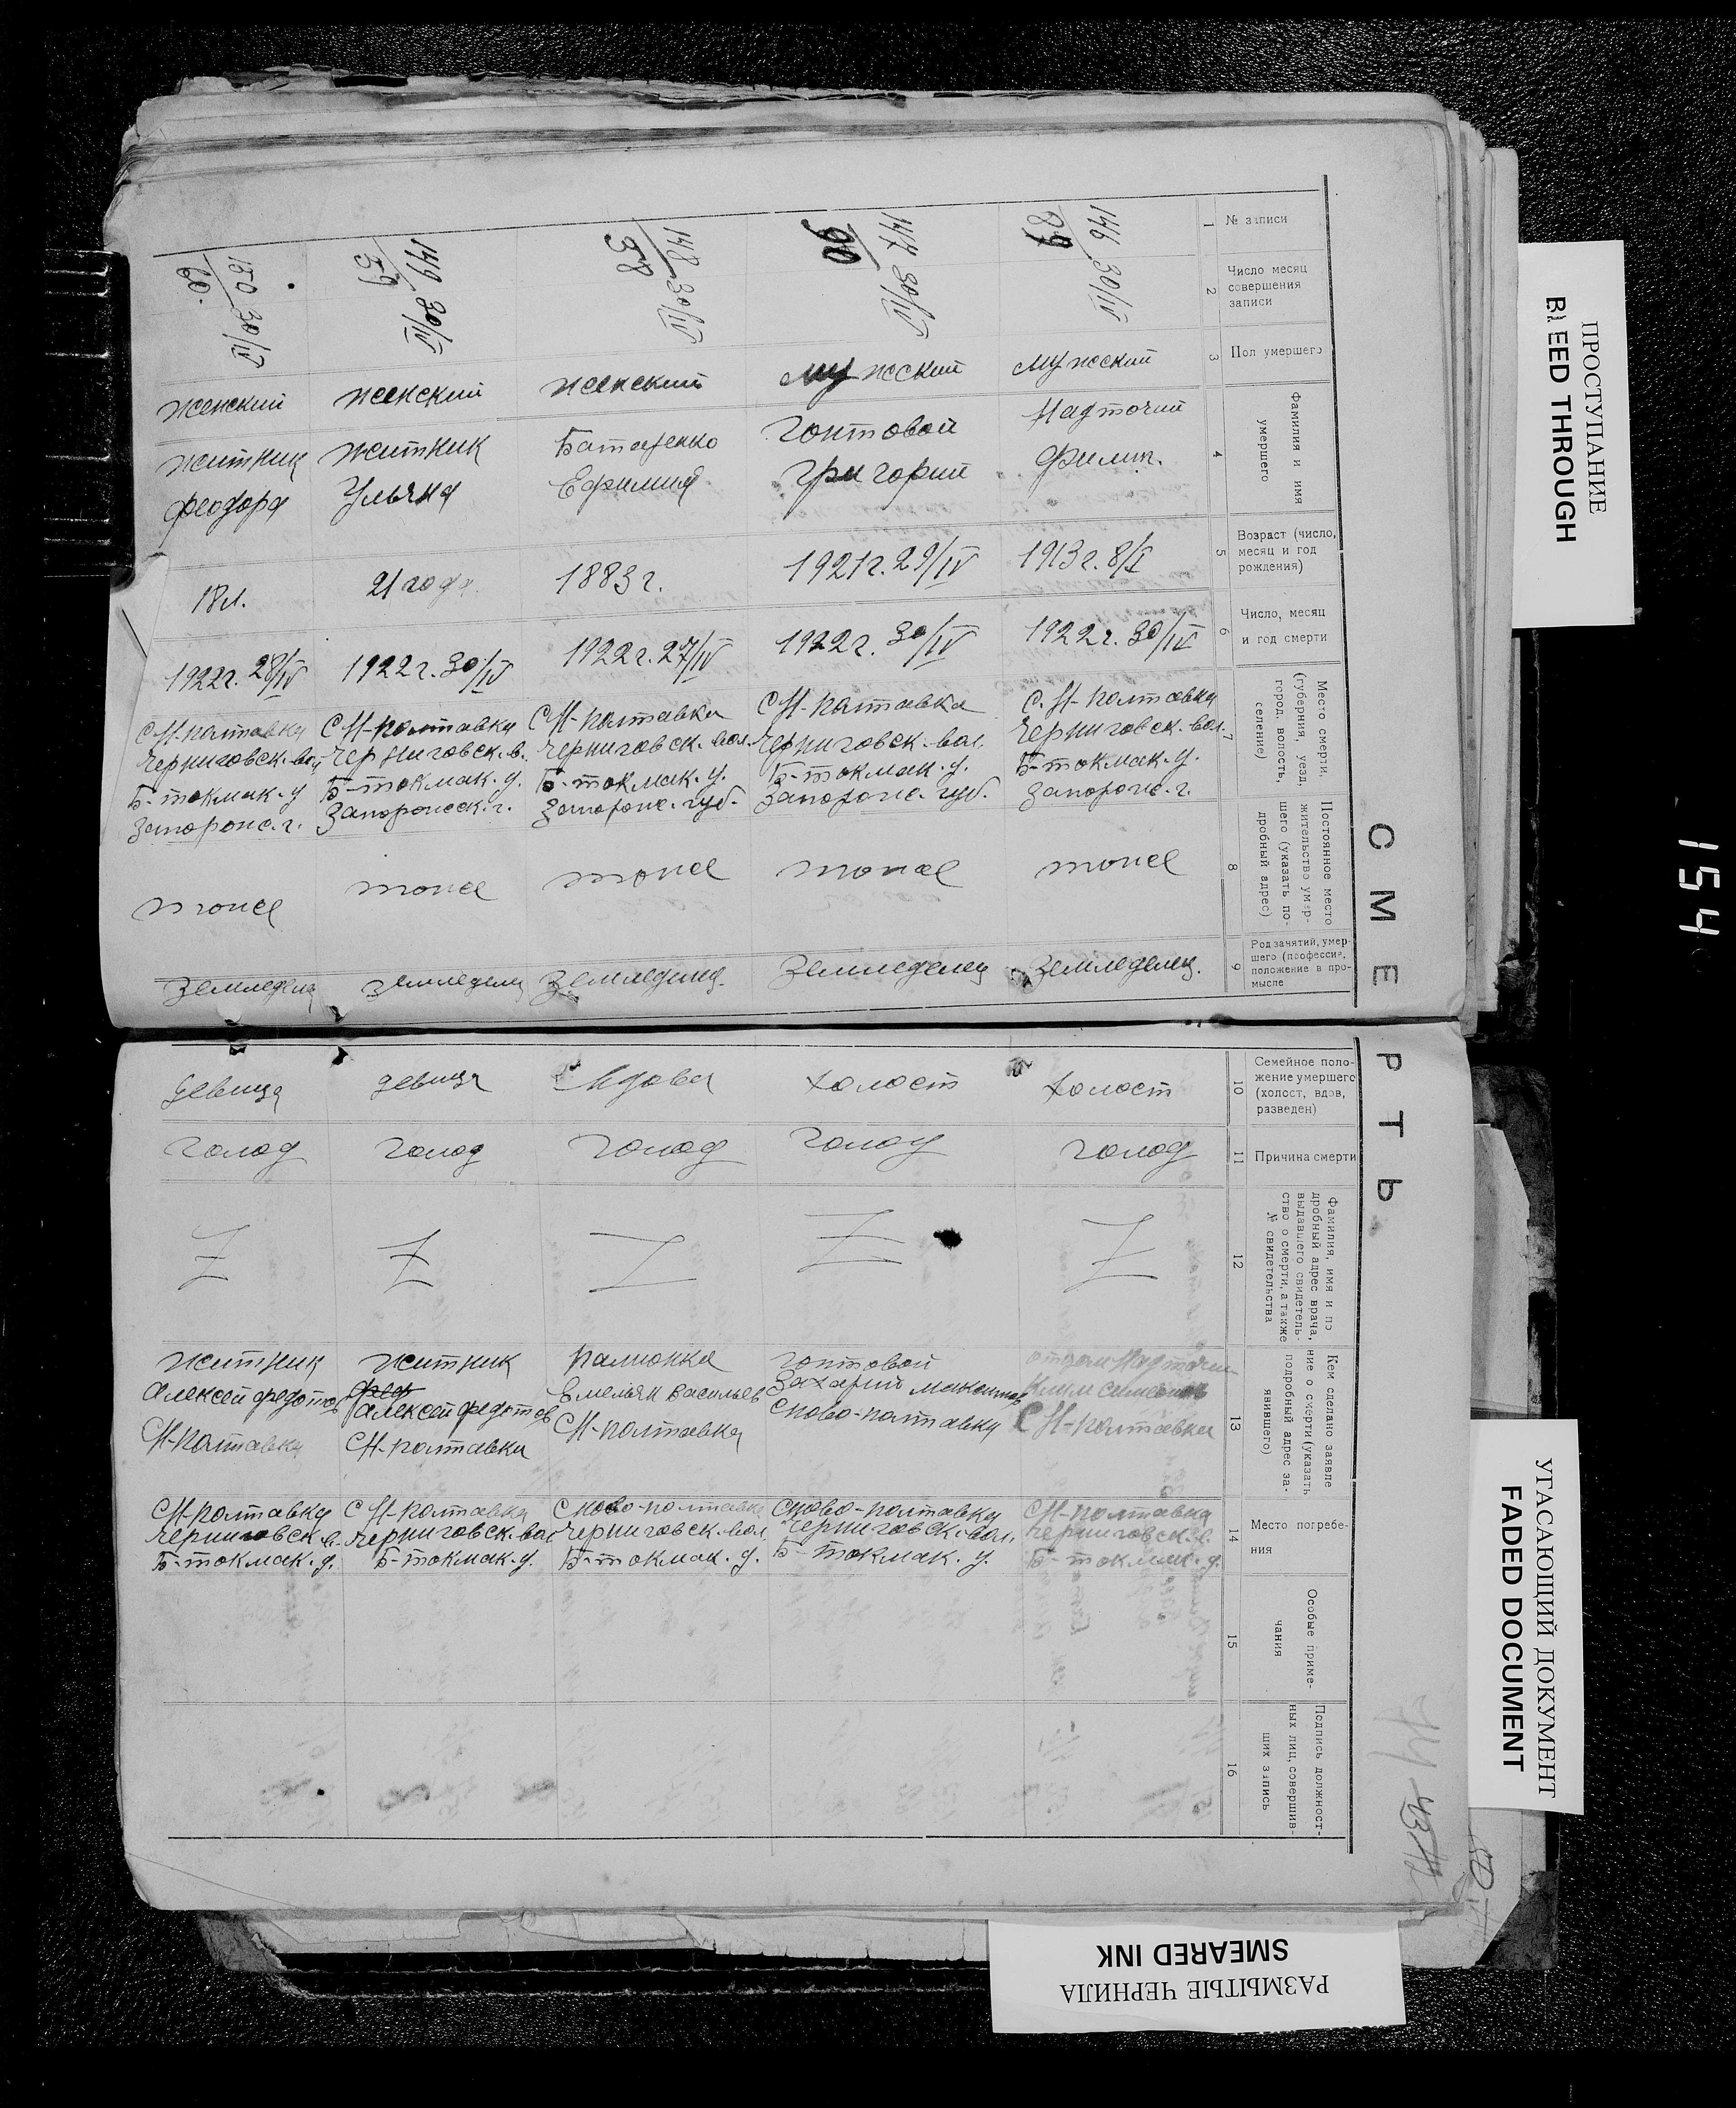 СМЕРТЬ
1
№ записи
2
Число месяц
совершения
записи
3
Пол умершего
4
Фамилия и имя
умершего
5
Возраст (число,
месяц и год
рождения)
6
Число, месяц
и год смерти
7
Место смерти,
(губерния, уезд,
город, волость,
селение)
8
Постоянное место
жительство умер-
шего (указать по-
дробный адрес)
9
Род занятий, умер-
шего (профессия,
положение в про-
мысле
10
Семейное поло-
жение умершего
(холост, вдов,
разведен)
11
Причина смерти
12
Фамилия, имя и по
дробный адрес врача,
выдавшего свидетель-
ство о смерти, а также
№ свидетельства
13
Кем сделано заявле
ние о смерти (указать
подробный адрес за-
явившего)
14
Место погребе-
ния
15
Особые приме-
чания
16
Подпись должност-
ных лиц, совершив-
ших запись
146
89
30/IV
мужский
Надточий
Филип.
1913 г. 8/I
1922 г. 30/IV
с. Н-полтавка
Черниговск. вол.
Б-токмак. у.
Запорож. г.
тоже
земледелец.
холост
голод
Z
отцом Надточий
Клим
С Н-полтавка
СН-полтавка
Черниговск. в.
Б-токмак. у.
147
90
30/IV
мужский
Гонтовой
Григорий
1921 г. 29/IV
1922 г. 30/IV
С Н-полтавка
Черниговск. вол.
Б-токмак. у.
Запорож. губ.
тоже
Земледелец
холост
голод
Z
Гонтовой
Захарий Максимов
С ново-полтавка
С ново-полтавка
Черниговск. вол.
Б-токмак. у.
148
58
30/IV
женский
Ефимия
1883 г.
1922 г. 27/IV
С Н-полтавка
Черниговск. вол.
Б-токмак. у.
Запорож. губ.
тоже
Земледелец.
вдова
голод
Z
Емельян Васильев
СН-полтавка
С ново-полтавка
Черниговск. вол.
Б-токмак. у.
149
59
30/IV
женский
Житник
Ульяна
21 года.
1922 г. 30/IV
С Н-полтавка
Черниговск. в.
Б-токмак. у.
Запорожск. г.
тоже
земледелец
девица
голод
Z
Житник
Алексей Федотов
СН-полтавка
С Н-полтавка
Черниговск. вол
Б-токмак. у.
150
60.
30/IV
женский
Житник
Феодора
18 л.
1922 г. 28/IV
СН-полтавка
Черниговск. вол
Б-токмак. у
Запорож. г.
тоже
Земледелец
девица
голод
Z
Житник
Алексей Федотов
СН-полтавка
СН-полтавка
Черниговск. в.
Б-токмак. у.
ПРОСТУПАНИЕ
BLEED THROUGH
154
УГАСАЮЩИЙ ДОКУМЕНТ
FADED DOCUMENT
РАЗМЫТЫЕ ЧЕРНИЛА
SMEARED INK